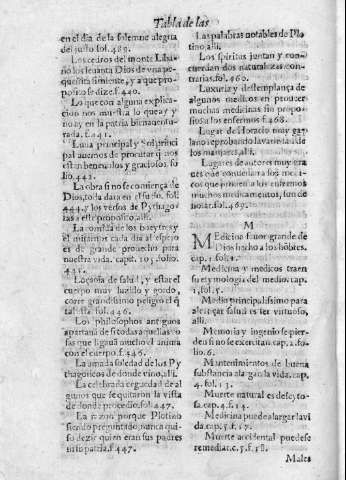 Tabla de las
en el dia de la solemne alegria
del justo fol.489.
Los cedros del monte Liba-
no los levanta Dios de una pe-
queña simiente, y a que pro-
posito se dize. f.440.
Lo que con alguna explica-
cion nos muestra lo que ay y
no ay en la patria bienaventu-
rada. f.441.
Luna principal y Sol princi-
pal avemos de procurar q̃ nos
esten benevolos y graciosos. fo
lio.442.
La obra si no se comiença de
Dios, toda dara en el suelo. fol.
444. y los versos de Pythago-
ras a este proposito, alli.
La comida de los bueyes, y
el mirarnos cada dia al espejo
es de grande provecho para
nuestra vida. capit. 105. folio.
445.
Loçania de salud, y estar el
cuerpo muy luzillo y gordo,
corre grandissimo peligro el q̃
tal esta fol.446.
Los philosophos antiguos
apartavã de si todas aquellas co
sas que ligavã mucho el anima
con el cuerpo. f.546.
La amada soledad de los Py
thagoricos de donde vino, alli.
La celebrada ceguedad de al
gunos que se quitaron la vista
de donde procedio, fol.447.
La razon porque Plotino
siendo preguntado, nunca qui-
so dezir quien eran sus padres
ni su patria. f.447.
Las palabras notables de Plo
tino, alli.
Los spiritus juntan y con-
cuerdan dos naturalezas con-
trarias. fol.460.
Luxuria y destemplança de
algunos medicos en proveer
muchas medicinas sin propo-
sito a los enfermos. f.468.
Lugar de Horacio muy gala
no reprobando la variedad de
los manjares, alli.
Lugares de autores muy gra
ves que condenan a los medi-
cos que provẽen a los enfermos
muchos medicamentos, son de
notar. fol.469.
M
Medicina favor grande de
Dios hecho a los hõbres.
cap.1. fol.1.
Medicina y medicos traen
su etymologia del medio, cap.
1. fol.5.
Medio principalissimo para
alcançar salud es ser virtuoso,
alli.
Memoria y ingenio se pier-
den si no se exercitan. cap.2. fo
lio.6.
Mantenimientos de buena
substancia alargan la vida. cap.
4. fol.13.
Muerte natural es deleyto-
sa. cap.4. f.14.
Medicina puede alargar la vi
da. cap.5. f.17.
Muerte accidental puedese
remediar. c.5. f.18.
Males